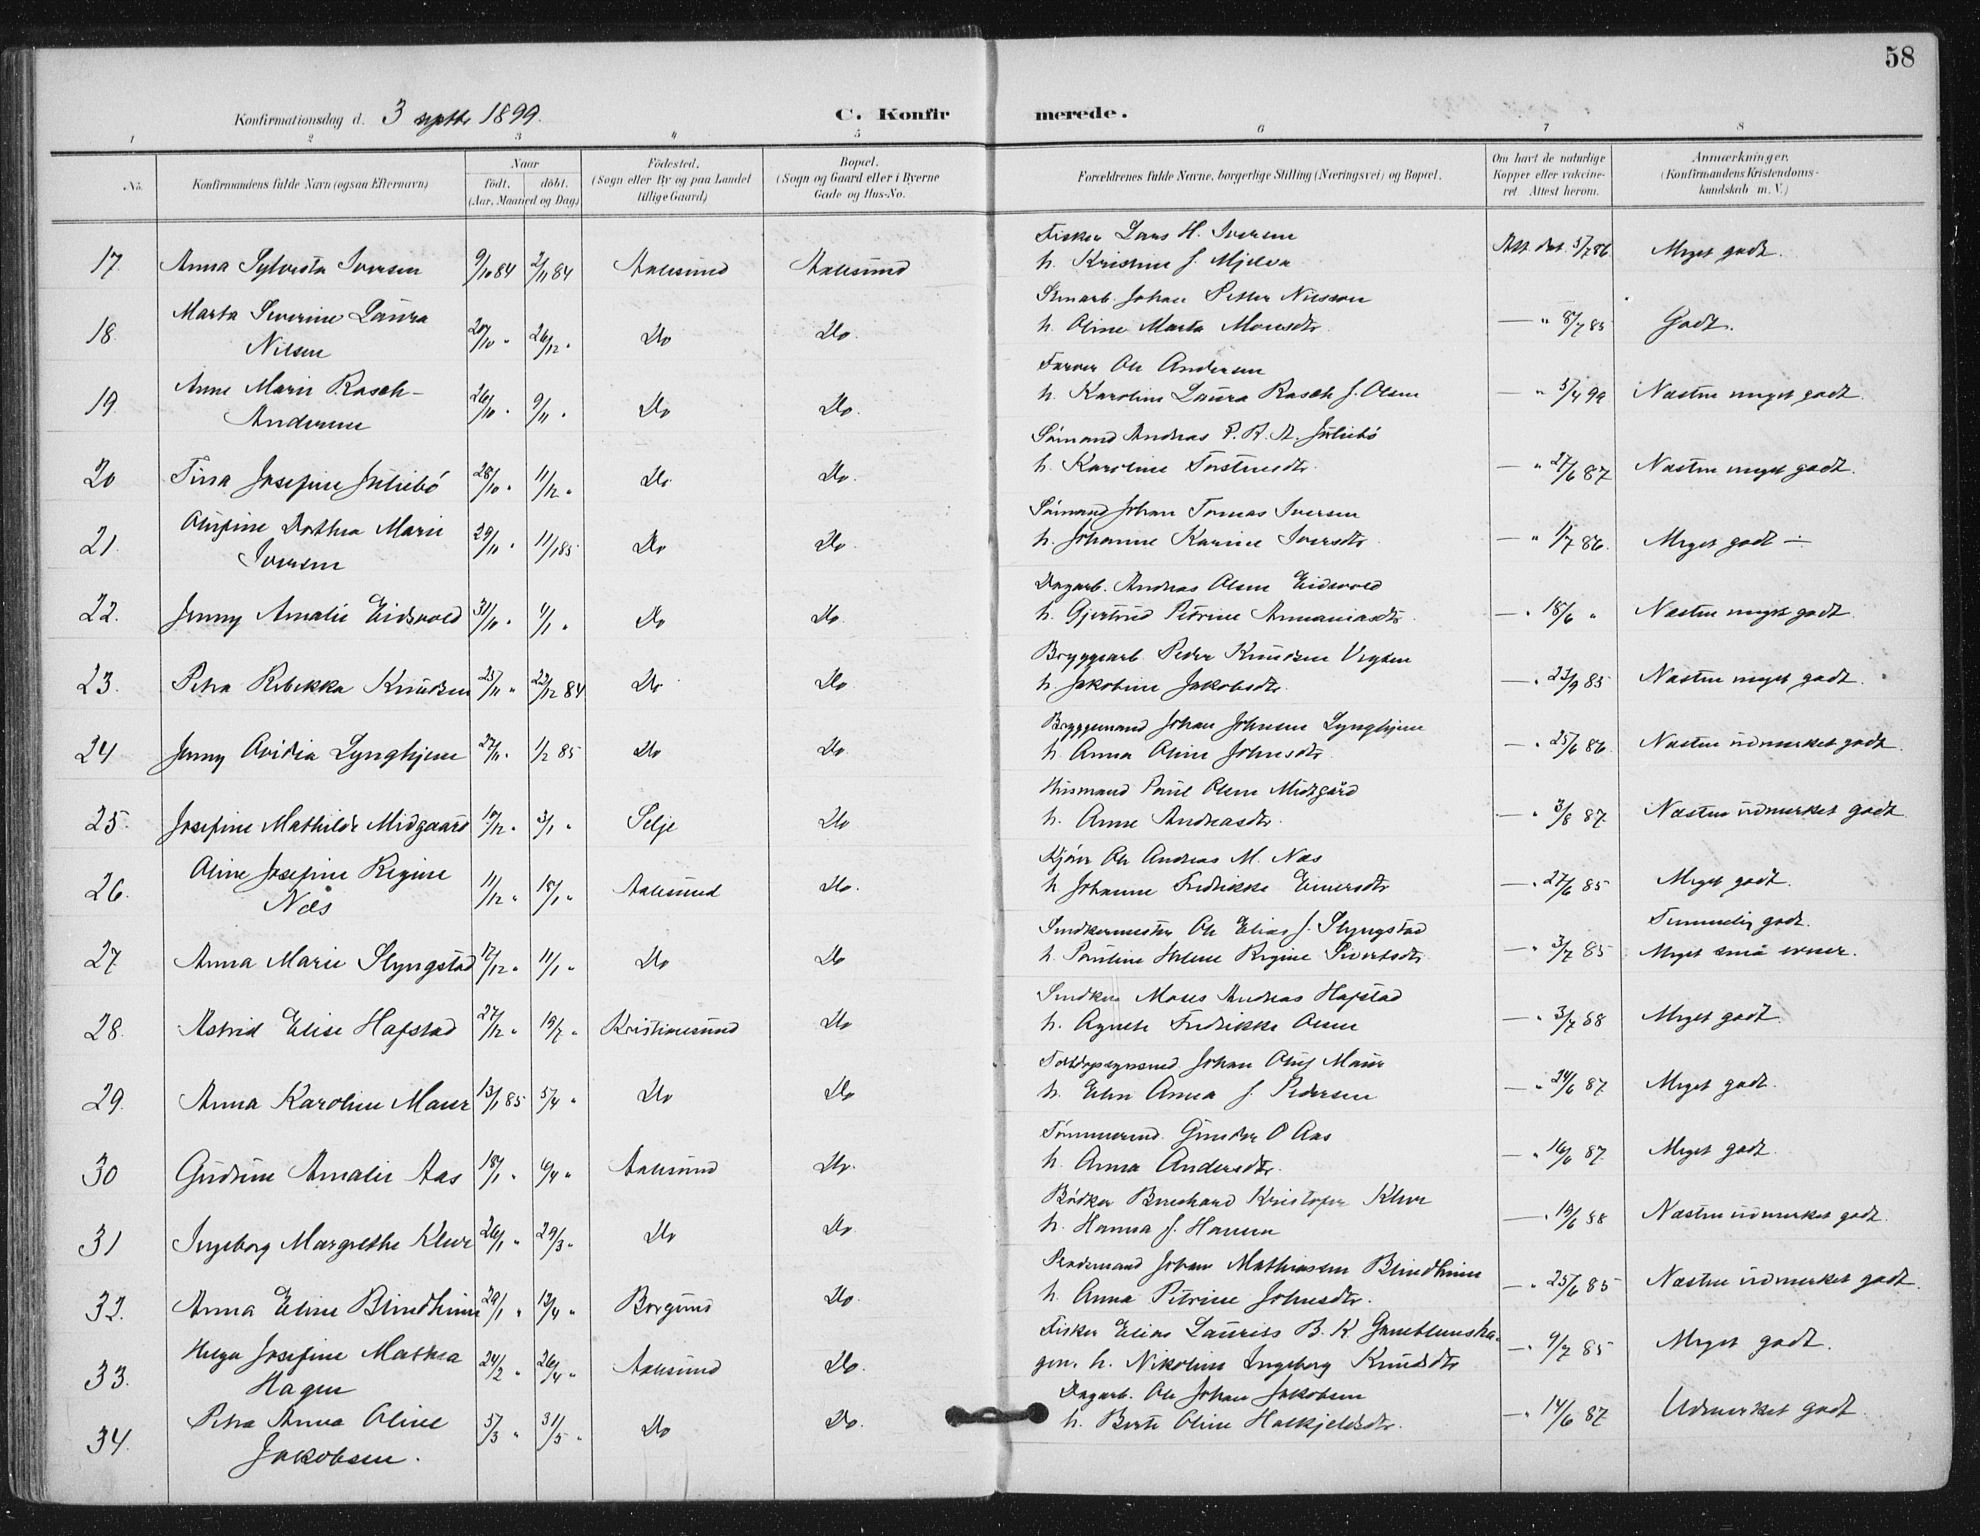 58
Konfirmationsdag d. 3 septbr 1899.
C. Konfirmerede.
1 2 3 4 5 6 7 8
No. Konfirmandens fulde Navn (ogsaa Efternavn) Naar født. døbt. (Aar, Maaned og Dag) Fødested. (Sogn eller By og paa Landet tillige Gaard) Bopæl. (Sogn og Gaard eller i Byerne Gade og Hus-No. Forældrenes fulde Navne, borgerlige Stilling (Næringsvei) og Bopæl. Om havt de naturlige Kopper eller vakcineret. Attest herom. Anmærkninger. (Konfirmandens Kristendomskundskab m. V.)
Fisker Lars H. Iversen
17. Anna Sylvesta Iversen 9/10 84 2/11 84 Aalesund Aalesund h. Kristine f. Mjelva Att. dat. 5/7 86. Meget godt.
Marta Severine Laura Stenarb. Johan Petter Nilsson
18. Nilsen 20/10 " 26/12 " Do Do. h. Oline Marta Monsdtr. — " 8/7 85 Godt.
Anne Marie Rasch- Farver Ole Andersen
19. Andersen 26/10 " 9/11 " Do Do. h. Karoline Laura Rasch f. Olsen — " 5/4 99 Næsten meget godt.
Sömand Andreas P. B. A. Juliebö
20 Tina Josefine Juliebö 28/10 " 11/12 " Do Do. h. Karoline Torstensdtr. — " 27/6 87 Næsten meget godt.
Olufine Dorthea Marie Sömand Johan Tomas Iversen
21. Iversen 29/11 " 11/1 85 Do Do. h. Johanne Karine Iversdtr. — " 1/7 86. Meget godt ÷
Dagarb. Andreas Olsen Eidsvold
22. Jenny Amalie Eidsvold 31/10 " 1/1 " Do Do. h. Gjertrud Petrine Annaniasdtr. — " 18/6 " Næsten meget godt.
Bryggearb. Peder Knudsen Vegsen
23. Petra Rebekka Knudsen 25/11 " 22/12 84 Do Do h. Jakobine Jakobsdtr. — " 23/9 85 Næsten meget godt.
Bryggemand Johan Johnsen Lynghjem
24 Jenny Ovidia Lynghjem 27/11 " 1/2 85 Do Do h. Anna Oline Johnsdtr. — " 25/6 86. Næsten udmerket godt.
Husmand Paul Olsen Midtgård
25. Josefine Mathilde Midgaard 10/12 " 3/1 " Selje Do h. Anne Andreasdtr. — " 3/8 87. Næsten udmerket godt.
Oline Josefine Regine Kjörer Ole Andreas M. Næs
26. Næs 11/12 " 18/1 " Aalesund Do. h. Johanne Fredrikke Einersdtr — " 27/6 85 Meget godt.
Snedkermester Ole Elias J. Slyngstad Temmelig godt.
27. Anna Marie Slyngstad 12/12 " 11/1 " Do Do h. Pauline Helene Regine Sivertsdtr. — " 3/7 85 Meget små evner.
Snedker Moses Andreas Hafstad
28. Astrid Elise Hafstad 27/12 " 19/7 " Kristiansund Do h. Agnete Fredrikke Olsen — " 3/7 88 Meget godt.
Johan Oluf Maur
29. Anna Karoline Maur 13/1 85 5/4 " Do Do h. Elen Anna f. Pedersen — " 24/6 87 Meget godt.
Tömmermd. Gunder O Aas
30 Gudrun Amalie Aas 18/1 " 6/4 " Aalesund Do. h. Anna Andersdtr. — " 16/6 87. Meget godt.
Bödker Bernhard Kristofer Kleve
31 Ingeborg Margrethe Kleve 26/1 " 29/3 " Do Do h. Hanna f. Hansen — " 19/6 88 Næsten udmerket godt.
Johan Mathiassen Blindheim
32. Anna Eline Blindheim 29/1 " 13/4 " Borgund Do. h. Anna Petrine Johnsdtr. — " 25/6 85 Næsten udmerket godt.
Helga Josefine Mathea Fisker Elias Laurits B. K.
33. Hagen 24/2 " 26/4 " Aalesund Do. gen. h. Nikoline Ingeborg Knudsdtr — " 9/7 85 Meget godt.
Petra Anna Oline Dagarb. Ole Johan Jakobsen
34. Jakobsen. 5/3 " 31/5 " Do Do. h. Berte Oline Holkjeldsdtr. — " 14/6 87 Udmerket godt.